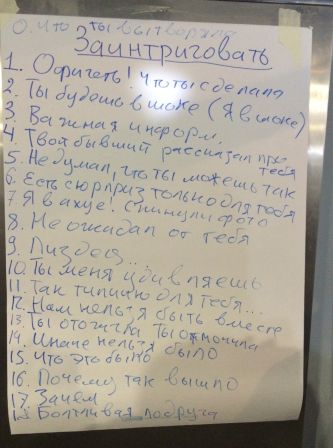 0. Что ты вытворяла
Заинтриговать
1. Офигеть! Что ты сделала
2. Ты будешь в шоке (Я в шоке)
3. Важная информ.
4. Твой бывший рассказал про тебя
5. Не думал, что ты можешь так
6. Есть сюрприз только для тебя
7. Я в ахуе! скинули фото
8. Не ожидал от тебя
9. Пиздец...
10. Ты меня удивляешь
11. Так типично для тебя...
12. Нам нельзя быть вместе
13. Ты отожгла Ты отмочила
14. Иначе нельзя было
15. Что это было
16. Почему так вышло
17. Зачем
18. Болтливая подруга